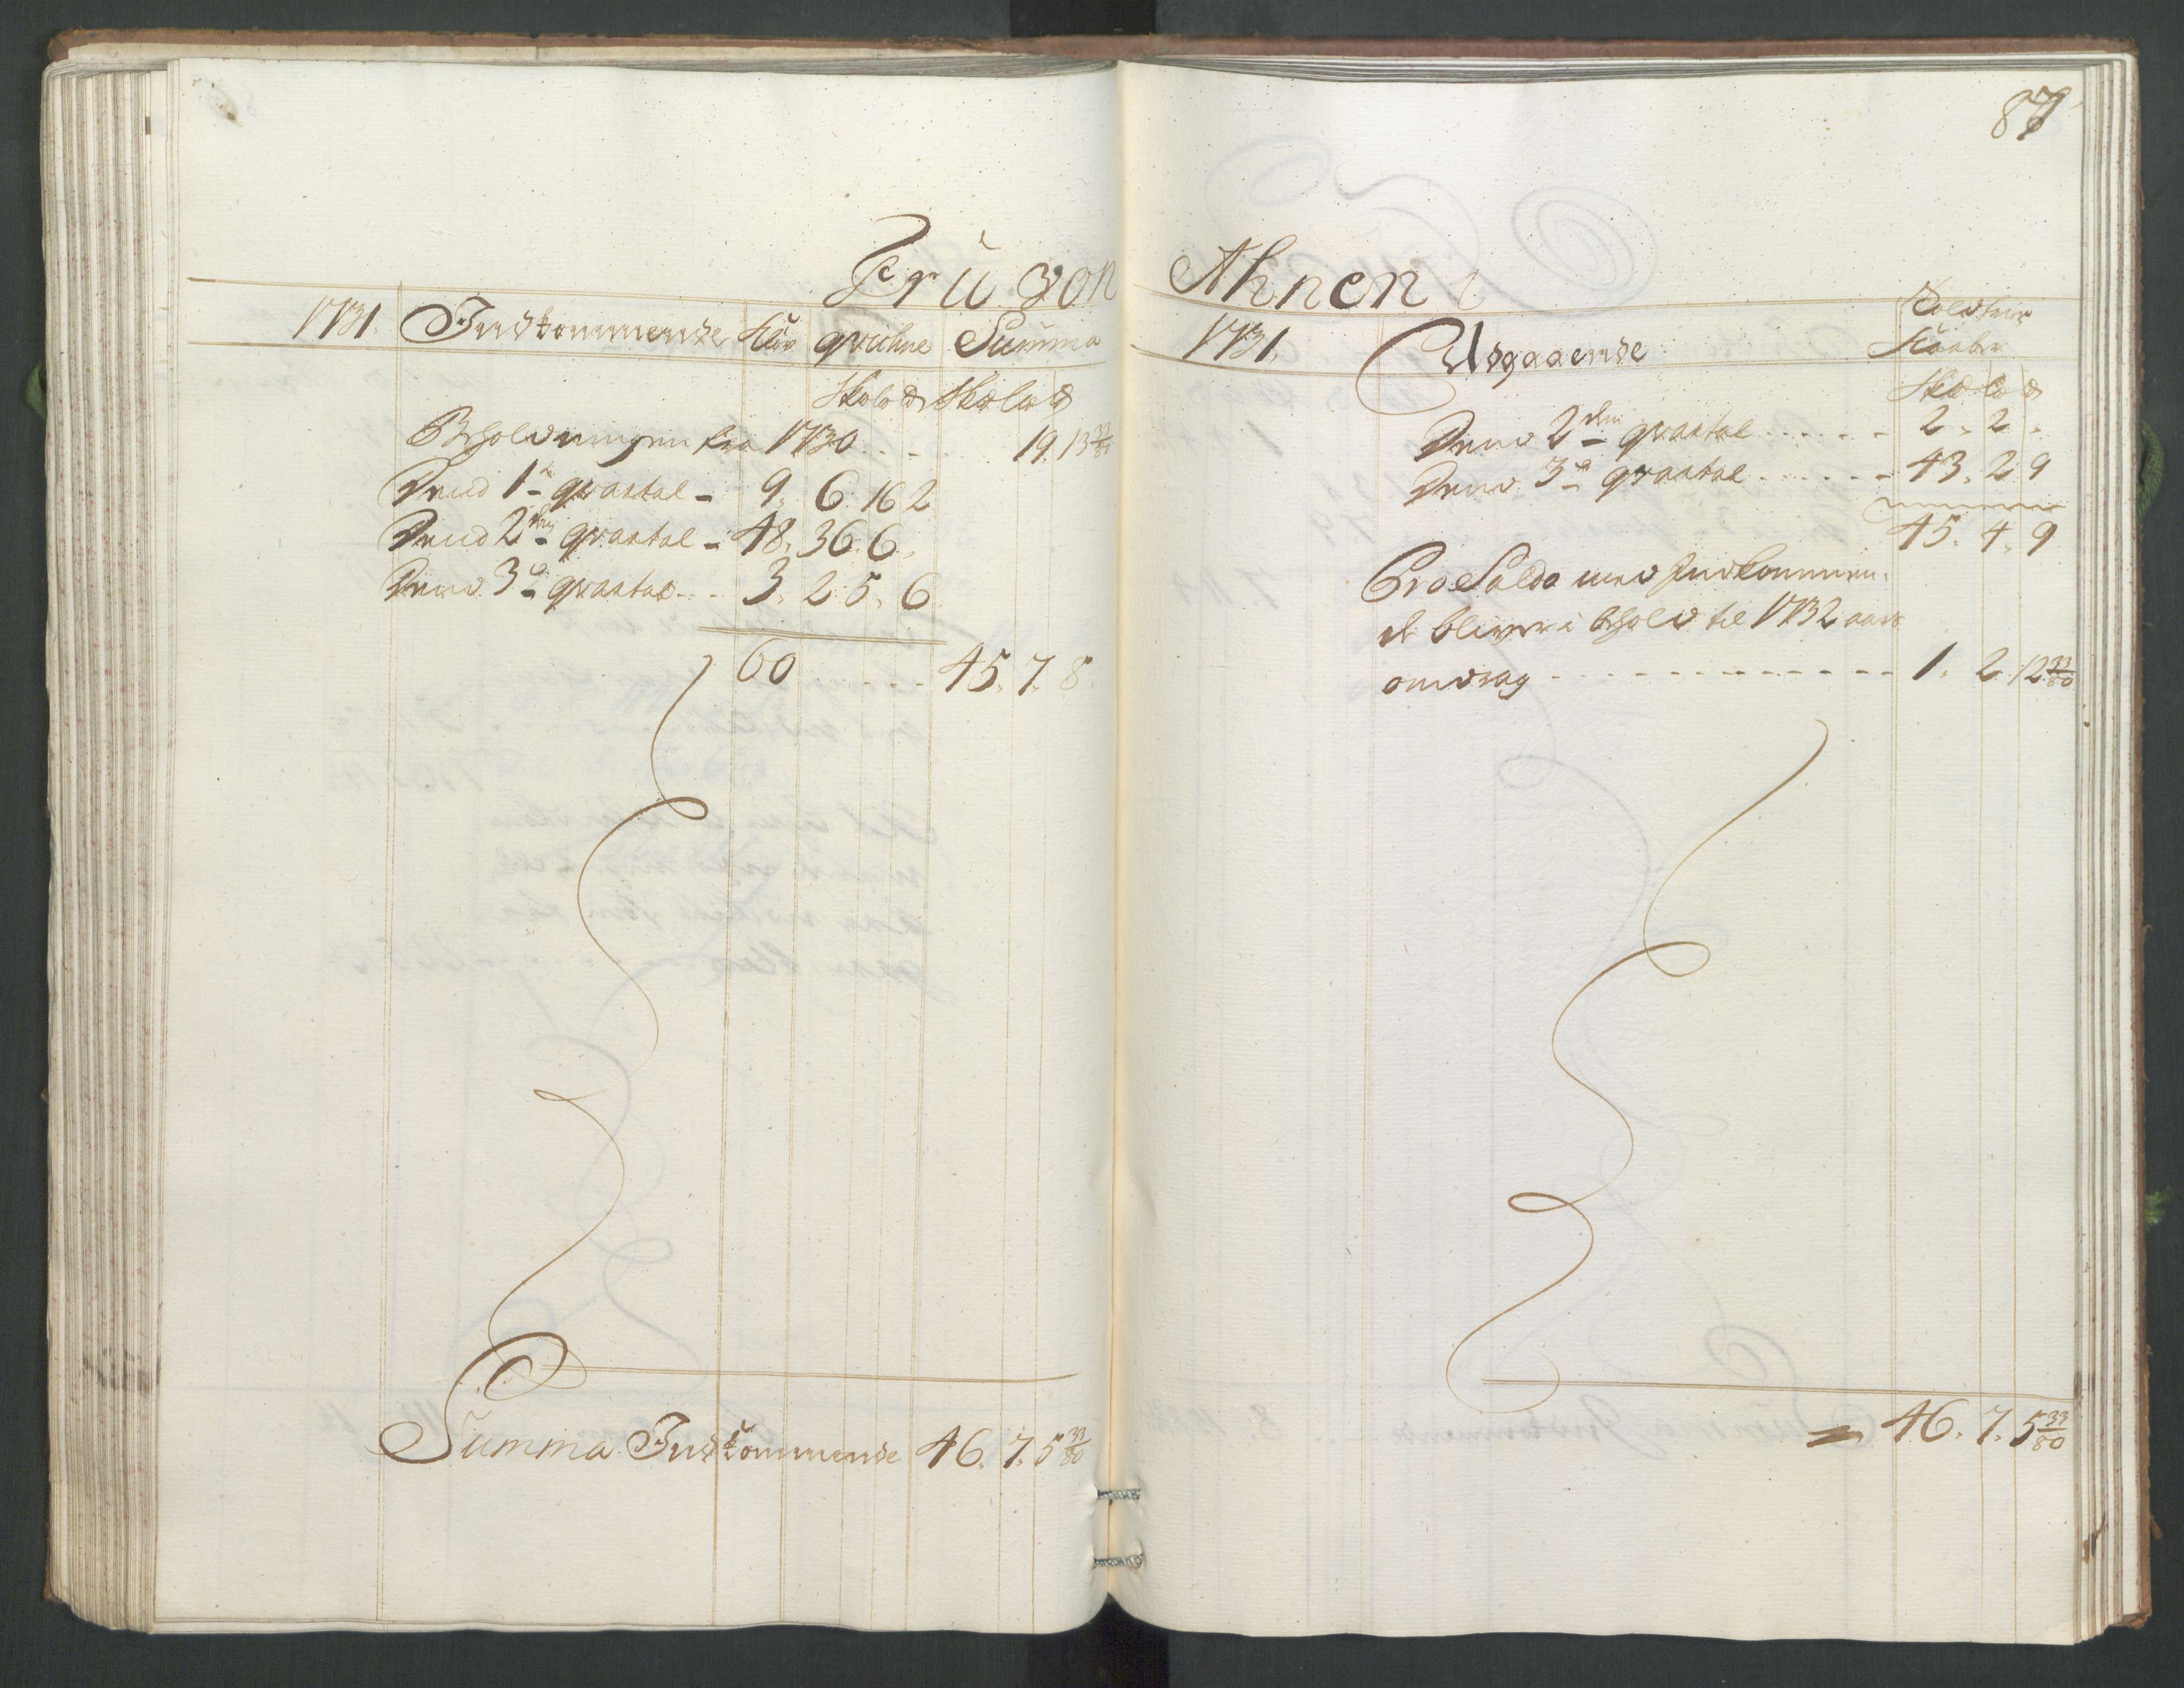 87
Fru von Ahnen
1731. Indkommende Kiør qvicher Summa
Sk lo ℔ Sk lo ℔
Beholdningen fra 1730 . . . . 19. 13 33/80
Dend 1te qvartal - 9. 6 16 2
Dend 2den qvartal - 48. 36. 6.
Dend 3die qvartal - - 3. 2. 5. 6
60 . . . . . 45. 7. 8.
Summa Indkommende 46. 7. 5 33/80
1731. Udgaaende
Kaaber
Sk lo ℔
Dend 2den qvartal . . . . . - 2. 2.
Dend 3die qvartal . . . . . - 43. 2 9
45. 4. 9
Pro Saldo med Indkommen-
de bliver i behold til 1732 aars
omdrag - - - - - - - - - - - - 1. 2. 12 33/80
= 46. 7. 5 33/80